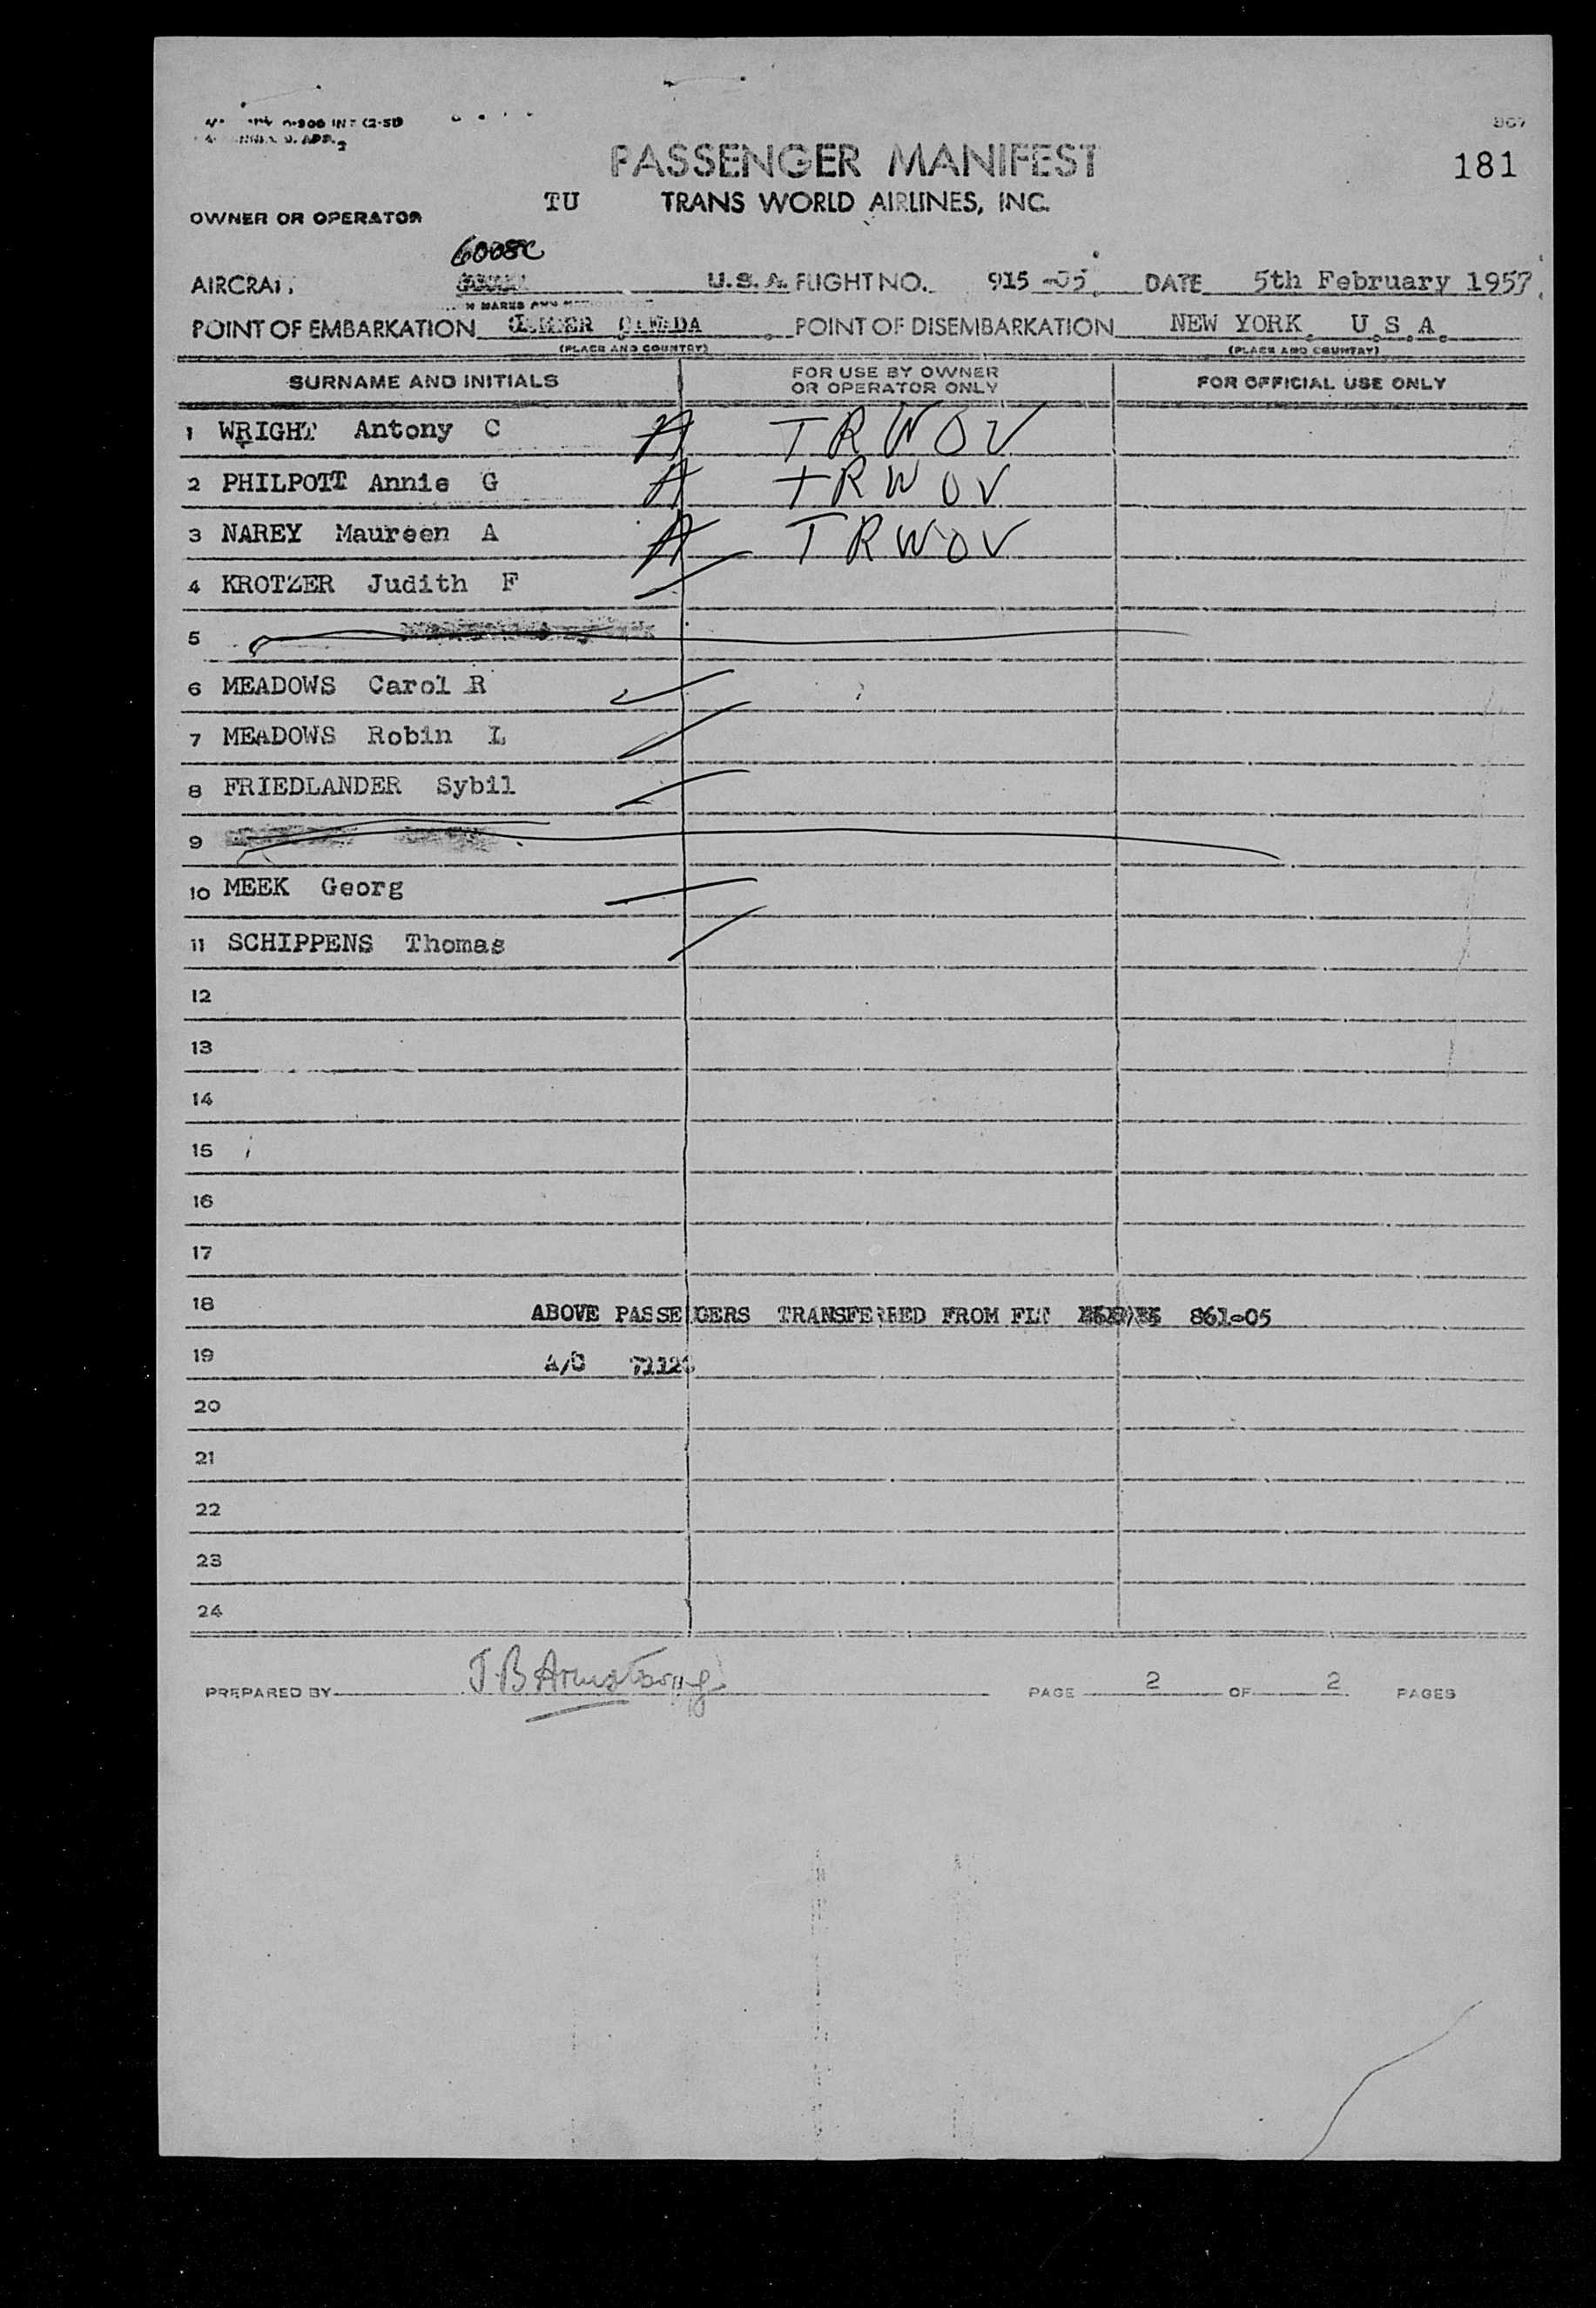 181
PASSENGER MANIFEST
OWNER OR OPERATOR TU TRANS WORLD AIRLINES, INC.
6008C
U.S.A. FLIGHT NO. 915-05 DATE 5th February 1957
POINT OF EMBARKATION GANDER CANADA POINT OF DISEMBARKATION NEW YORK U.S.A.
(PLACE AND COUNTRY) (PLACE AND COUNTRY)
SURNAME AND INITIALS FOR USE BY OWNER OR OPERATOR ONLY FOR OFFICIAL USE ONLY
1 WRIGHT Antony C A TRWOV
2 PHILPOTT Annie G A TRWOV
3 NAREY Maureen A A TRWOV
4 KROTZER Judith F
5
6 MEADOWS Carol R
7 MEADOWS Robin L
8 FRIEDLANDER Sybil
9
10 MEEK Georg
11 SCHIPPENS Thomas
12
13
14
15
16
17
18 ABOVE PASSENGERS TRANSFERRED FROM FLT 861-05
19 A/C
20
21
22
23
24
PREPARED BY J B Armstrong PAGE 2 OF 2 PAGES